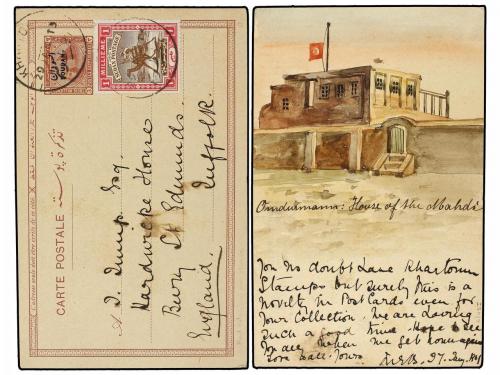 CARTE POSTALE
تذكرة بوستة
SOUDAN
السودان
1 MILLIEME 1
KHARTOUM
J. Simp Esq.
Hardwicke House
Bury St Edmunds.
Suffolk.
England.
Omdurmann: House of the Mahdi
You no doubt have Khartoum
Stamps but surely this is a
novelty in Post Cards even for
your Collection. We are having
such a good time. Hope to see
you all when we get home again
love to all. Yours
27. Jany.